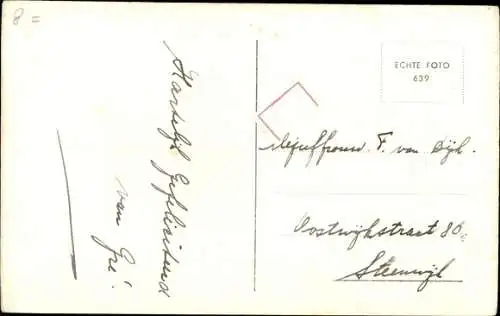 8 =
Hartelijk Gefeliciteerd
van Gré.
ECHTE FOTO
639
Mejuffrouw. F. van Dijk.
Oostwijkstraat 80
Steenwijk